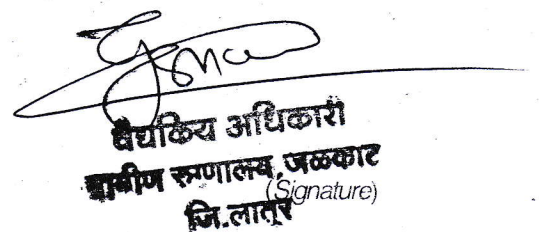 वैद्यकिय अधिकारी
ग्रामीण रुग्णालय, जळकोट
(Signature)
जि.लातूर